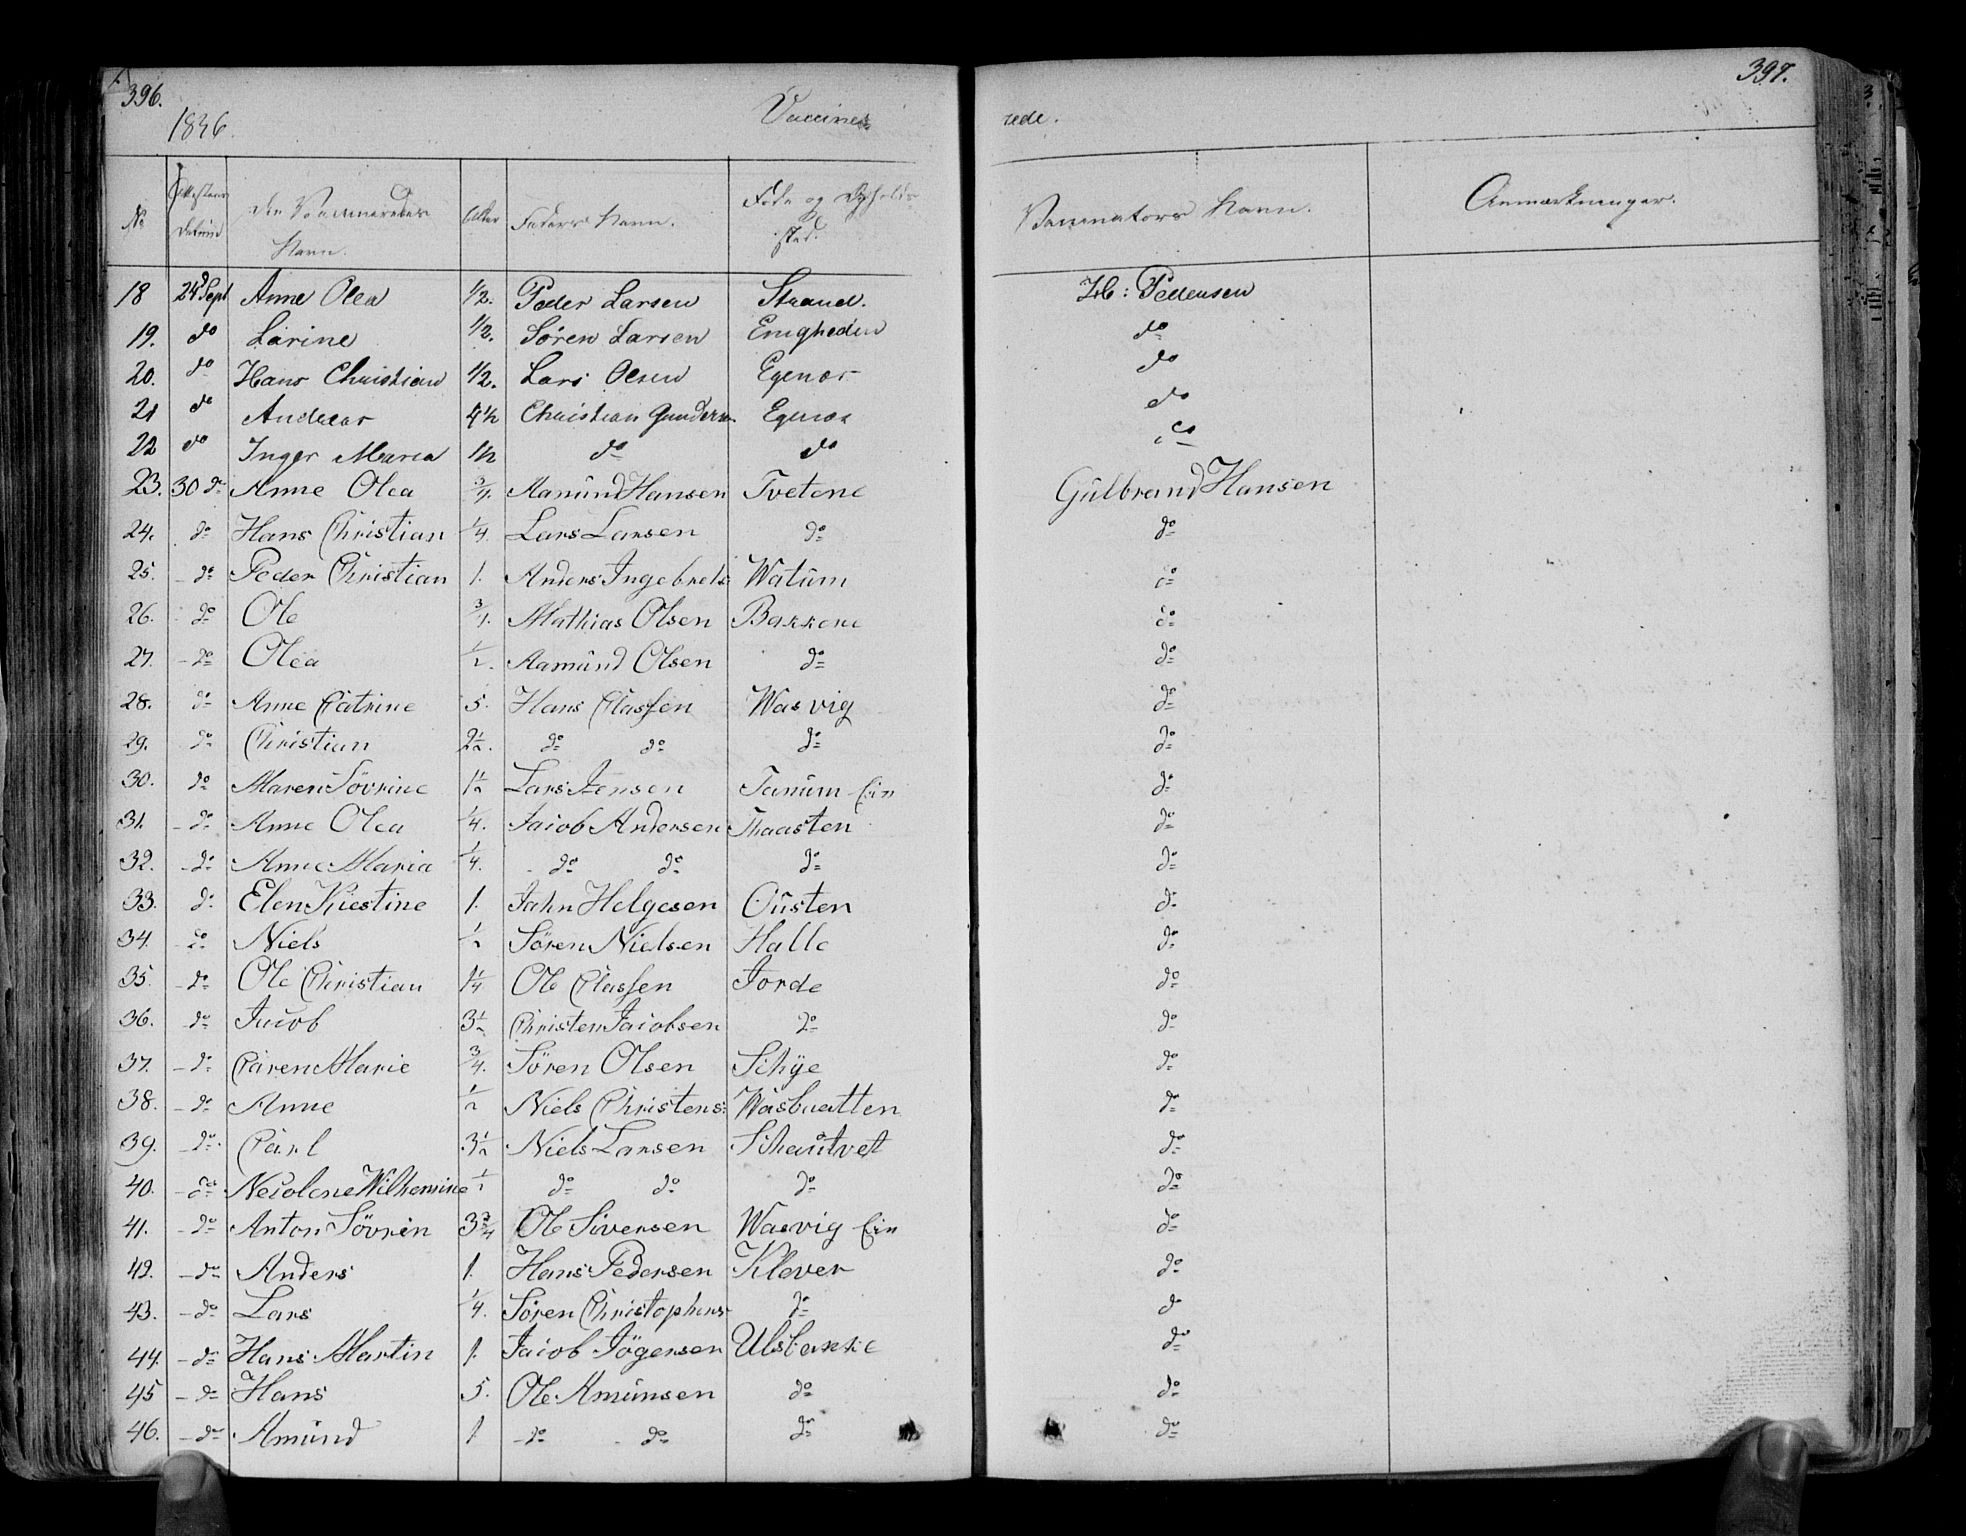 396. 397.
1836. Vaccine= rede.
No Attestens Datum Den Vaccineredes Navn. Alder Faders Navn. Føde og Opholds sted. Vaccinators Navn. Anmærkninger.
18 24d Sept Anne Olea 1/2. Peder Larsen Strand. H: Pettersen
19. do Larine 1/2. Sören Larsen Enigheden do
20. do Hans Christian 1/2. Lars Olsen Egenæs do
21 do Andreas 4 1/2 Christian Gunders. Egenæs do
22 do Inger Maria 1/2 do do do
23. 30 do Anne Olea 3/4. Aamund Hansen Tvetene Gulbrand Hansen
24. do Hans Christian 1/4. Lars Larsen do do
25. - do Peder Christian 1. Anders Ingebrets: Watum do
26. do Ole 3/4. Mathias Olsen Bakkene do
27. - do Olea 1/2. Aamund Olsen do do
28. do Anne Catrine 5. Hans Classen Wasvig do
29. do Christian 2 1/2. do do do do
30. do Maren Sövrine 1 1/2 Lars Jensen Tanum Ein do
31. - do Anne Olea 1/4. Jacob Andersen Thaasten do
32. - do Anne Maria 1/4. - do do do do
33. do Elen Kiestine 1. Jahn Helgesen Ousten do
34. - do Niels 1/2 Sören Nielsen Halle do
35. - do Ole Christian 1 1/4 Ole Classen Jorde do
36. - do Jacob 3 1/2 Christen Jacobsen do do
37. - do Caren Marie 3/4. Sören Olsen Schye do
38. - do Anne 1/2 Niels Christens: Wasbuatten do
39. - do Carl 3 1/2 Niels Larsen Schautvet do
40. - do Necolene Wilhemine do do do do
41. - do Anton Sövrin 3 3/4 Ole Siversen Wasvig Ein do
42. - do Anders 1. Hans Pedersen Klever do
43. - do Lars 1/4. Sören Christophers do do
44. - do Hans Martin 1. Jacob Jögensen Ulsbakke do
45 - do Hans 5. Ole Amunsen do do
46. - do Amund 1 - do - do do do